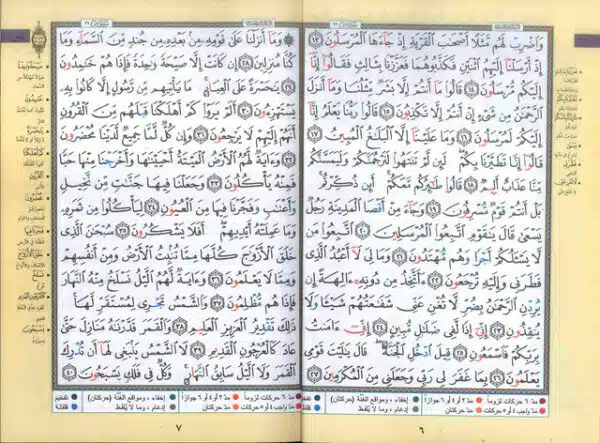 وَاضْرِبْ لَهُم مَّثَلًا أَصْحَٰبَ الْقَرْيَةِ إِذْ جَآءَهَا الْمُرْسَلُونَ ١٣
إِذْ أَرْسَلْنَآ إِلَيْهِمُ اثْنَيْنِ فَكَذَّبُوهُمَا فَعَزَّزْنَا بِثَالِثٍ فَقَالُوٓا إِنَّآ
إِلَيْكُم مُّرْسَلُونَ ١٤ قَالُوا مَآ أَنتُمْ إِلَّا بَشَرٌ مِّثْلُنَا وَمَآ أَنزَلَ
الرَّحْمَٰنُ مِن شَىْءٍ إِنْ أَنتُمْ إِلَّا تَكْذِبُونَ ١٥ قَالُوا رَبُّنَا يَعْلَمُ إِنَّآ
إِلَيْكُمْ لَمُرْسَلُونَ ١٦ وَمَا عَلَيْنَآ إِلَّا الْبَلَٰغُ الْمُبِينُ ١٧
قَالُوٓا إِنَّا تَطَيَّرْنَا بِكُمْ لَئِن لَّمْ تَنتَهُوا لَنَرْجُمَنَّكُمْ وَلَيَمَسَّنَّكُم
مِّنَّا عَذَابٌ أَلِيمٌ ١٨ قَالُوا طَٰٓئِرُكُم مَّعَكُمْ أَئِن ذُكِّرْتُم
بَلْ أَنتُمْ قَوْمٌ مُّسْرِفُونَ ١٩ وَجَآءَ مِنْ أَقْصَا الْمَدِينَةِ رَجُلٌ
يَسْعَىٰ قَالَ يَٰقَوْمِ اتَّبِعُوا الْمُرْسَلِينَ ٢٠ اتَّبِعُوا مَن
لَّا يَسْـَٔلُكُمْ أَجْرًا وَهُم مُّهْتَدُونَ ٢١ وَمَا لِىَ لَآ أَعْبُدُ الَّذِى
فَطَرَنِى وَإِلَيْهِ تُرْجَعُونَ ٢٢ ءَأَتَّخِذُ مِن دُونِهِۦٓ ءَالِهَةً إِن
يُرِدْنِ الرَّحْمَٰنُ بِضُرٍّ لَّا تُغْنِ عَنِّى شَفَٰعَتُهُمْ شَيْـًٔا وَلَا
يُنقِذُونِ ٢٣ إِنِّىٓ إِذًا لَّفِى ضَلَٰلٍ مُّبِينٍ ٢٤ إِنِّىٓ ءَامَنتُ
بِرَبِّكُمْ فَاسْمَعُونِ ٢٥ قِيلَ ادْخُلِ الْجَنَّةَ قَالَ يَٰلَيْتَ قَوْمِى
يَعْلَمُونَ ٢٦ بِمَا غَفَرَ لِى رَبِّى وَجَعَلَنِى مِنَ الْمُكْرَمِينَ ٢٧
مدّ ٦ حركات لزوماً مدّ ٢ أو ٤ أو ٦ جوازاً إخفاء، ومواقع الغنّة (حركتان) تفخيم
مدّ واجب ٤ أو ٥ حركات مدّ حركتان إدغام، وما لا يُلفَظ قلقلة
٦
وَمَآ أَنزَلْنَا عَلَىٰ قَوْمِهِۦ مِنۢ بَعْدِهِۦ مِن جُندٍ مِّنَ السَّمَآءِ وَمَا
كُنَّا مُنزِلِينَ ٢٨ إِن كَانَتْ إِلَّا صَيْحَةً وَٰحِدَةً فَإِذَا هُمْ خَٰمِدُونَ
٢٩ يَٰحَسْرَةً عَلَى الْعِبَادِ مَا يَأْتِيهِم مِّن رَّسُولٍ إِلَّا كَانُوا بِهِۦ
يَسْتَهْزِءُونَ ٣٠ أَلَمْ يَرَوْا كَمْ أَهْلَكْنَا قَبْلَهُم مِّنَ الْقُرُونِ
أَنَّهُمْ إِلَيْهِمْ لَا يَرْجِعُونَ ٣١ وَإِن كُلٌّ لَّمَّا جَمِيعٌ لَّدَيْنَا مُحْضَرُونَ
٣٢ وَءَايَةٌ لَّهُمُ الْأَرْضُ الْمَيْتَةُ أَحْيَيْنَٰهَا وَأَخْرَجْنَا مِنْهَا حَبًّا
فَمِنْهُ يَأْكُلُونَ ٣٣ وَجَعَلْنَا فِيهَا جَنَّٰتٍ مِّن نَّخِيلٍ
وَأَعْنَٰبٍ وَفَجَّرْنَا فِيهَا مِنَ الْعُيُونِ ٣٤ لِيَأْكُلُوا مِن ثَمَرِهِۦ
وَمَا عَمِلَتْهُ أَيْدِيهِمْ أَفَلَا يَشْكُرُونَ ٣٥ سُبْحَٰنَ الَّذِى
خَلَقَ الْأَزْوَٰجَ كُلَّهَا مِمَّا تُنۢبِتُ الْأَرْضُ وَمِنْ أَنفُسِهِمْ
وَمِمَّا لَا يَعْلَمُونَ ٣٦ وَءَايَةٌ لَّهُمُ الَّيْلُ نَسْلَخُ مِنْهُ النَّهَارَ
فَإِذَا هُم مُّظْلِمُونَ ٣٧ وَالشَّمْسُ تَجْرِى لِمُسْتَقَرٍّ لَّهَا
ذَٰلِكَ تَقْدِيرُ الْعَزِيزِ الْعَلِيمِ ٣٨ وَالْقَمَرَ قَدَّرْنَٰهُ مَنَازِلَ حَتَّىٰ
عَادَ كَالْعُرْجُونِ الْقَدِيمِ ٣٩ لَا الشَّمْسُ يَنۢبَغِى لَهَآ أَن تُدْرِكَ
الْقَمَرَ وَلَا الَّيْلُ سَابِقُ النَّهَارِ وَكُلٌّ فِى فَلَكٍ يَسْبَحُونَ ٤٠
مدّ ٦ حركات لزوماً مدّ ٢ أو ٤ أو ٦ جوازاً إخفاء، ومواقع الغنّة (حركتان) تفخيم
مدّ واجب ٤ أو ٥ حركات مدّ حركتان إدغام، وما لا يُلفَظ قلقلة
٧